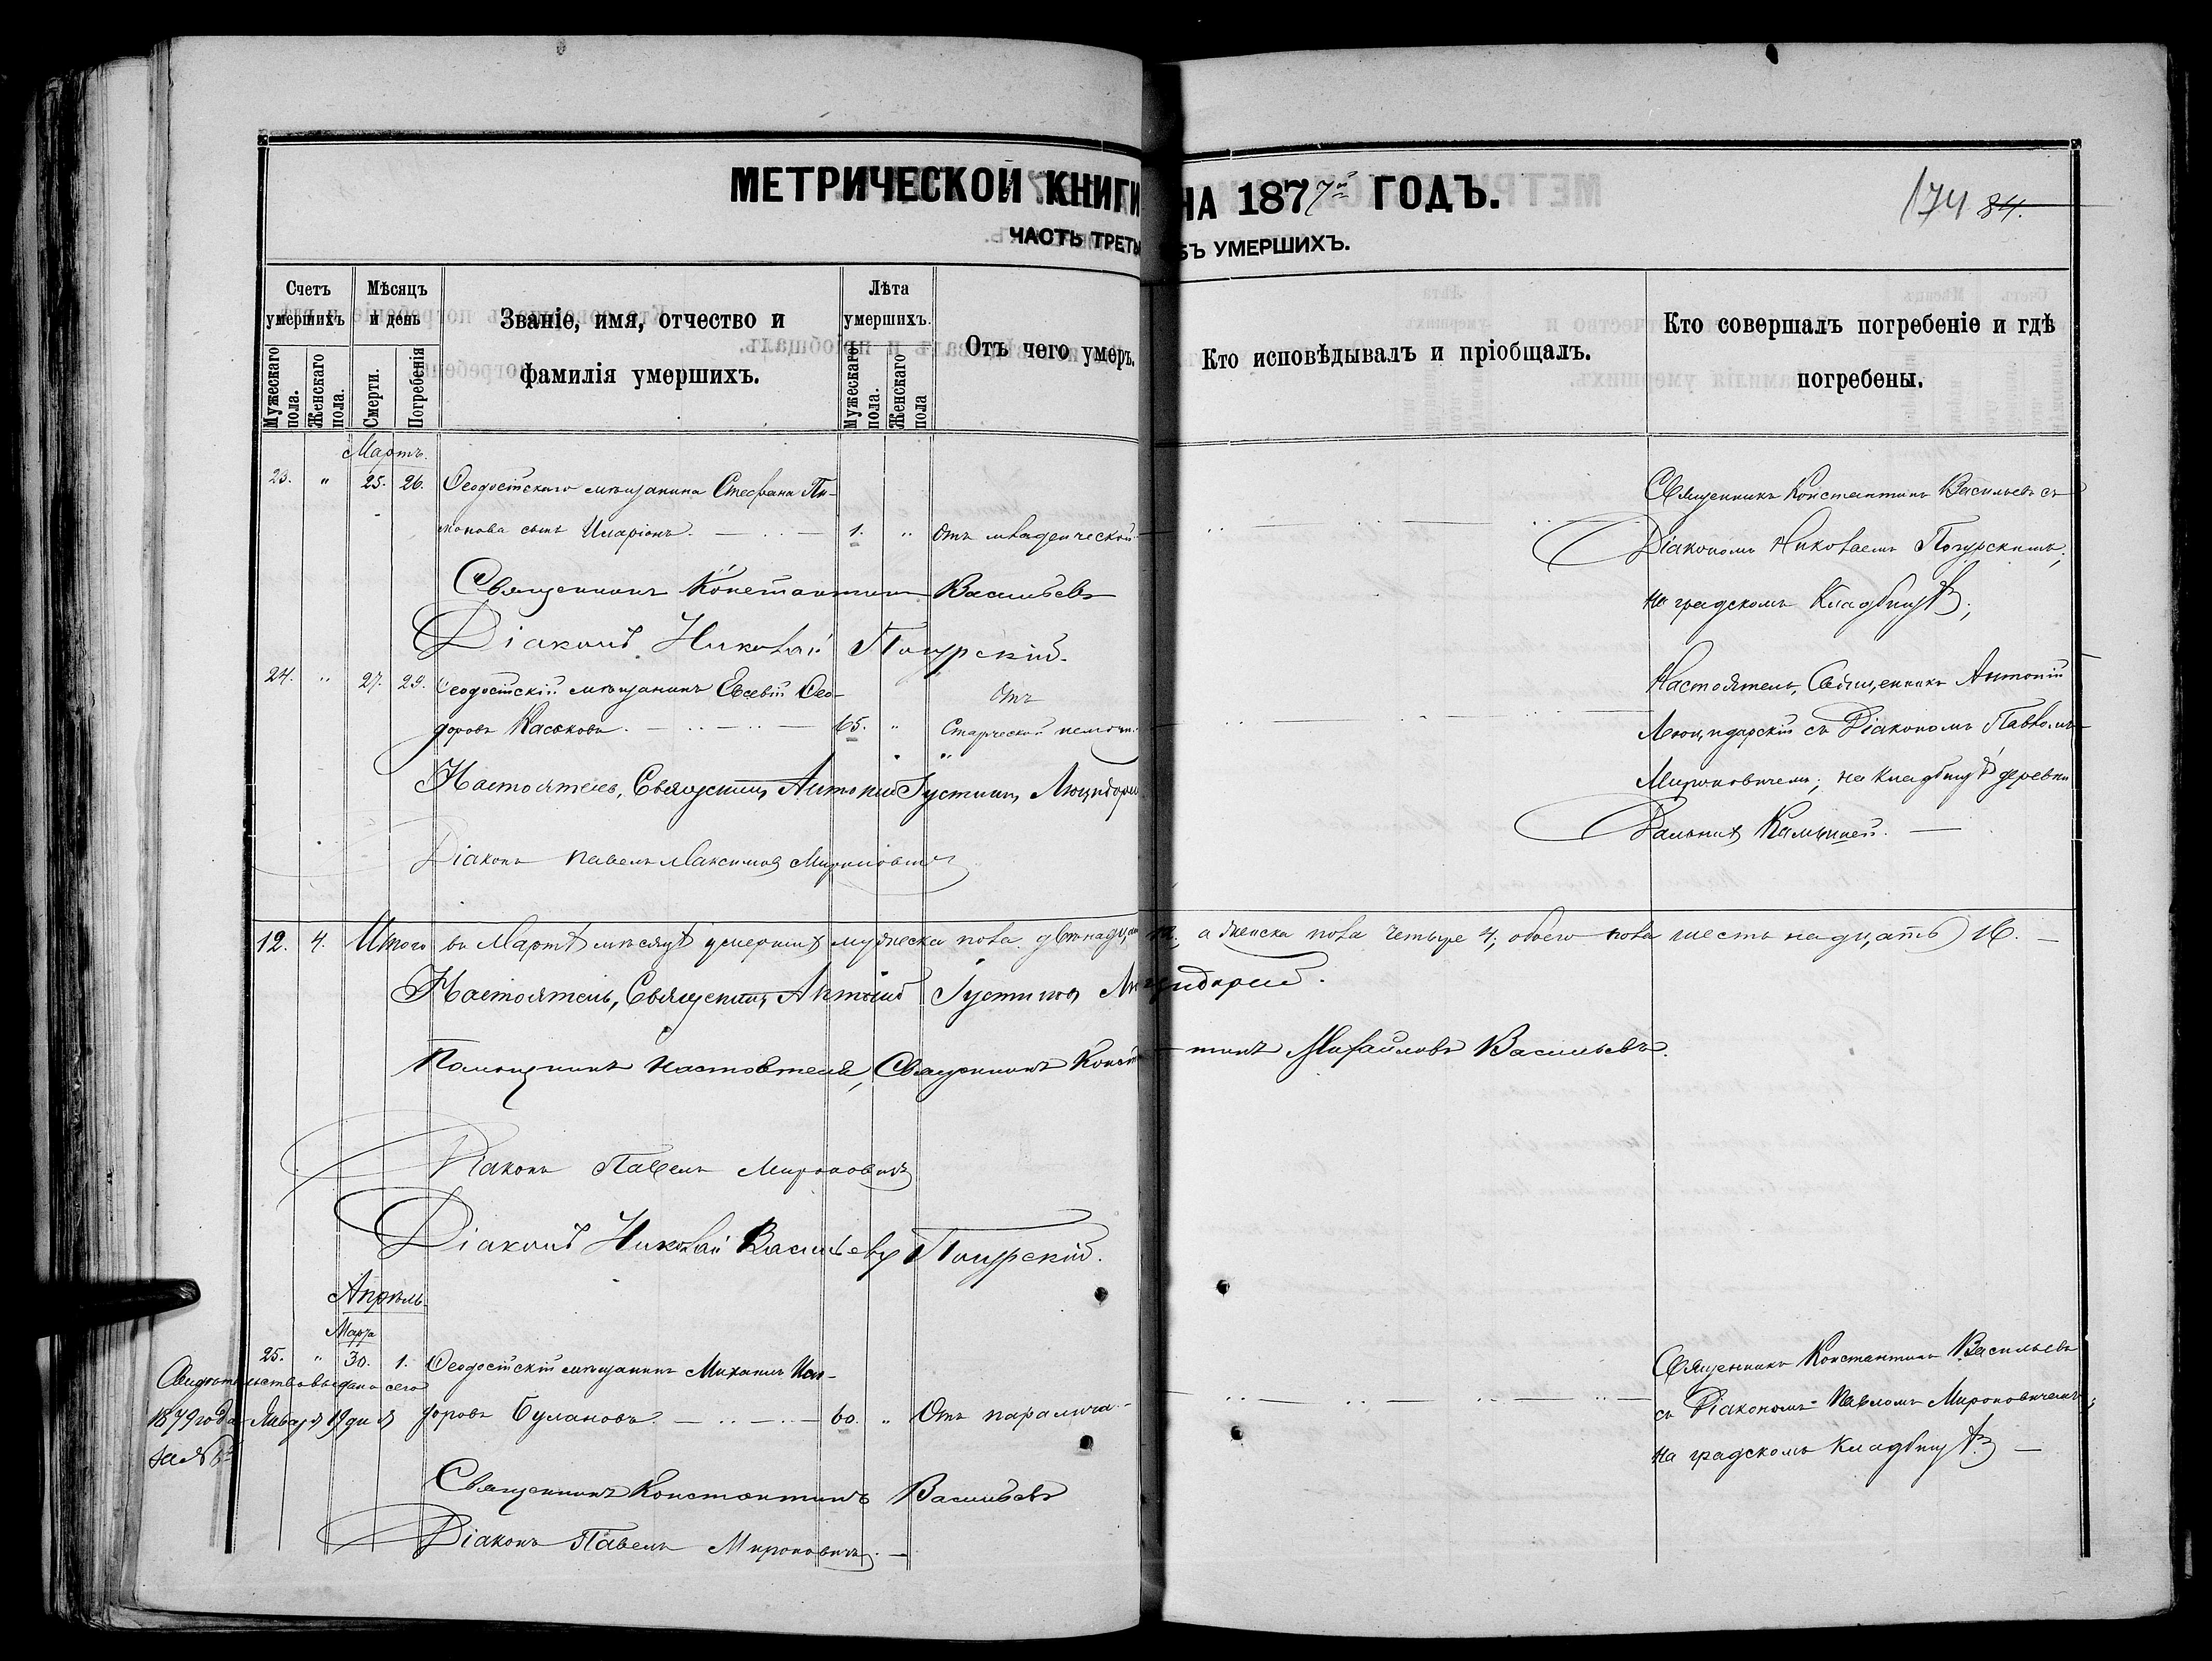 МЕТРИЧЕСКОЙ КНИГИ НА 1877й ГОДЪ.
174 84.
ЧАСТЬ ТРЕТЬ БЪ УМЕРШИХЪ.
Счетъ умершихъ
Мужескаго пола.
Женскаго пола.
Мѣсяцъ и день
Смерти.
Погребенія
Званіе, имя, отчество и
фамилія умершихъ.
Лѣта умершихъ.
Мужескаго пола.
Женскаго пола
Отъ чего умеръ.
Кто исповѣдывалъ и пріобщалъ.
Кто совершалъ погребеніе и гдѣ
погребены.
Мартъ.
23. " 25. 26. Ѳеодосійскаго мѣщанина Стефана
сынъ Иларіонъ. 1. " Отъ младенческой
Священникъ Константинъ Васильевъ съ
Діакономъ Николаемъ Погурскимъ;
на градскомъ кладбищѣ;
Священникъ Константинъ Васильевъ
Діаконъ Николай Погурскій.
24. " 27. 29. Ѳеодосійскій мѣщанинъ Евсевій Ѳео-
доровъ Каськовъ. 65. " Отъ
Старческой немощи.
Настоятель, Священникъ Антоній
съ Діакономъ Павломъ
Мироновичемъ; на кладбищѣ деревни
Дальнихъ Камышей.
Настоятель, Священникъ Антоній Іустиновъ
Діаконъ Павелъ Максимовъ Мироновичъ
12. 4. Итого въ Мартѣ мѣсяцѣ умершихъ мужеска пола двѣнадцать 12, а женска пола четыре 4; обоего пола шестьнадцать 16.
Настоятель, Священникъ Антоній Іустиновъ
Помощникъ настоятеля, Священникъ Константинъ Михайловъ Васильевъ.
Діаконъ Павелъ Мироновичъ
Діаконъ Николай Васильевъ Погурскій.
Апрѣль.
Марта
25. " 30. 1. Ѳеодосійскій мѣщанинъ Михаилъ Иси-
доровъ Булановъ. 60. " Отъ паралича
Свидѣтельство выдано сего
1879 года Января 19 дня
за № 6
Священникъ Константинъ Васильевъ
съ Діакономъ Павломъ Мироновичемъ;
на градскомъ кладбищѣ.
Священникъ Константинъ Васильевъ
Діаконъ Павелъ Мироновичъ.